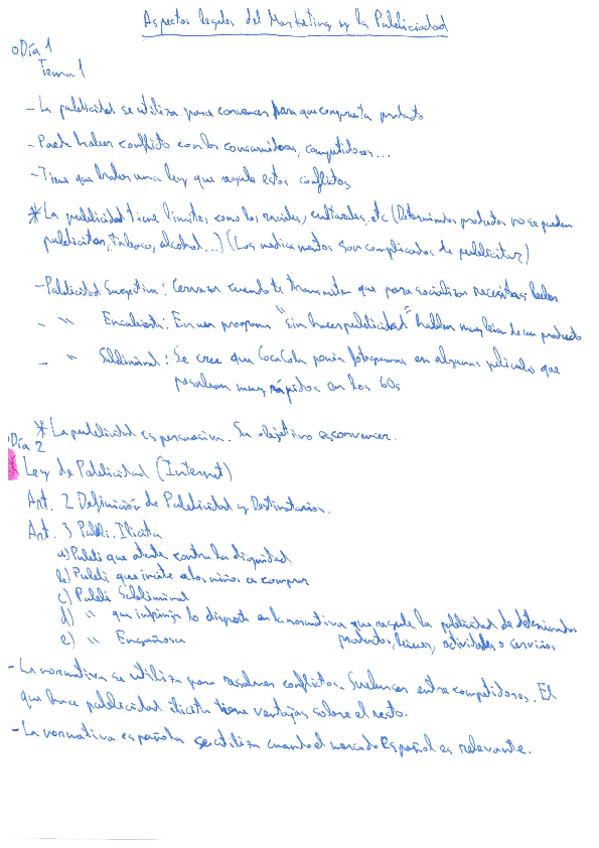 Aspectos legales del Marketing y la Publicidad
o Día 1
Tema 1
- La publicidad se utiliza para convencer para que compres tu producto
- Puede haber conflicto con los consumidores, competidores...
- Tiene que haber una ley que regule estos conflictos
* La publicidad tiene límites como los sociales, culturales, etc (Determinados productos no se pueden
publicitar, tabaco, alcohol...) (Los medicamentos son complicados de publicitar)
- Publicidad Suxestiva: Cerveza cuando te transmiten que para socializar necesitas beber
- " Encubierta: En un programa "sin hacer publicidad" hablan muy bien de un producto
- " Subliminal: Se cree que CocaCola ponía fotogramas en algunas películas que
pasaban muy rápidos en los 60s
* La publicidad es persuasiva. Su objetivo es convencer.
Día 2
* Ley de Publicidad (Internet)
Art. 2 Definición de Publicidad y Destinatarios.
Art. 3 Publi. Ilícita
a) Publi que atente contra la dignidad
b) Publi que incite a los niños a comprar
c) Publi Subliminal
d) " que infrinja lo dispuesto en la normativa que regule la publicidad de determinados
productos, bienes, actividades o servicios
e) " Engañosa
- La normativa se utiliza para resolver conflictos. Suelen ser entre competidores. El
que hace publicidad ilícita tiene ventajas sobre el resto.
- La normativa española se utiliza cuando el mercado Español es relevante.